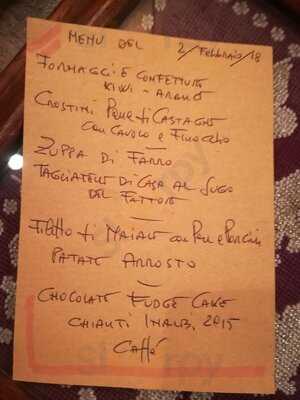 MENU DEL 2/Febbraio/18
FORMAGGI E CONFETTURA
KIWI - ARANCIO
CROSTINI PANE di CASTAGNE
CON CAVOLO E FINOCCHIO
ZUPPA DI FARRO
TAGLIATELLE DI CASA AL SUGO
DEL FATTORE
FILETTO di MAIALE con PANE e
PATATE ARROSTO
CHOCOLATE FUDGE CAKE
CHIANTI 2015
CAFFÉ